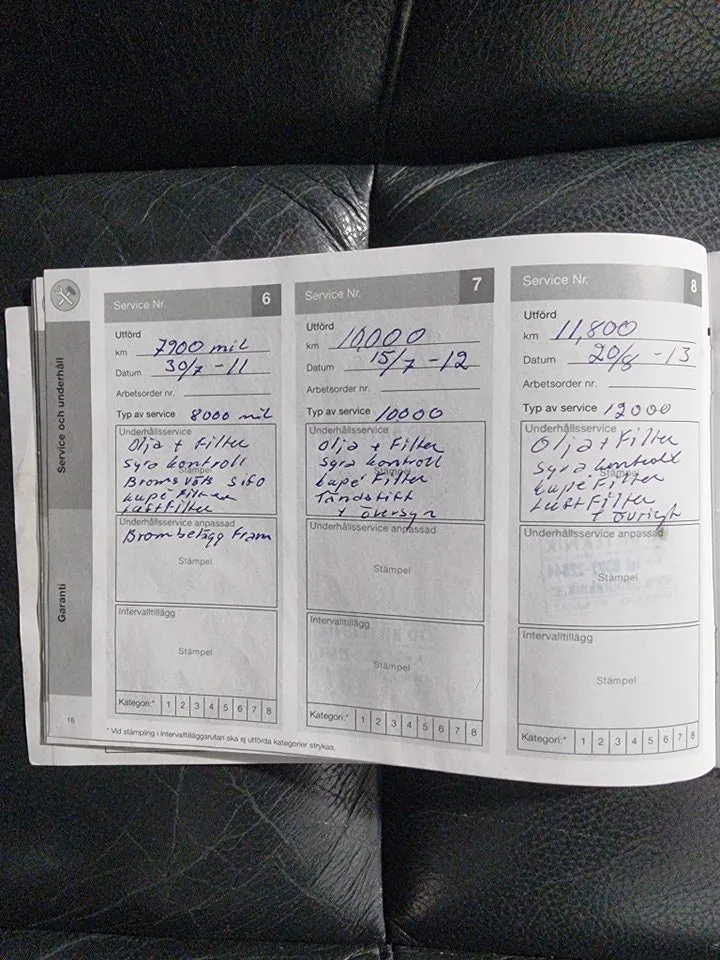 Service och underhåll
Garanti
16
Service Nr. 6
Utförd
km 7900 mil
Datum 30/7 -11
Arbetsorder nr.
Typ av service 8000 mil
Underhållsservice
Olja + Filter
Syra kontroll
Stämpel
Broms väts
kupé Filter
Luftfilter
Underhållsservice anpassad
Brombelägg Fram
Stämpel
Intervalltillägg
Stämpel
Kategori:* 1 2 3 4 5 6 7 8
* Vid stämpling i Intervalltilläggsrutan ska ej utförda kategorier strykas.
Service Nr. 7
Utförd
km 10,000
Datum 15/7 -12
Arbetsorder nr.
Typ av service 10000
Underhållsservice
Olja + Filter
Syra kontroll
Stämpel
kupé Filter
Tändstift
+ översyn
Underhållsservice anpassad
Stämpel
Intervalltillägg
Stämpel
Kategori:* 1 2 3 4 5 6 7 8
Service Nr. 8
Utförd
km 11,800
Datum 20/8 -13
Arbetsorder nr.
Typ av service 12000
Underhållsservice
Olja + Filter
Syra kontroll
Stämpel
kupé Filter
Luft Filter
+ övrigt
Underhållsservice anpassad
Stämpel
Intervalltillägg
Stämpel
Kategori:* 1 2 3 4 5 6 7 8